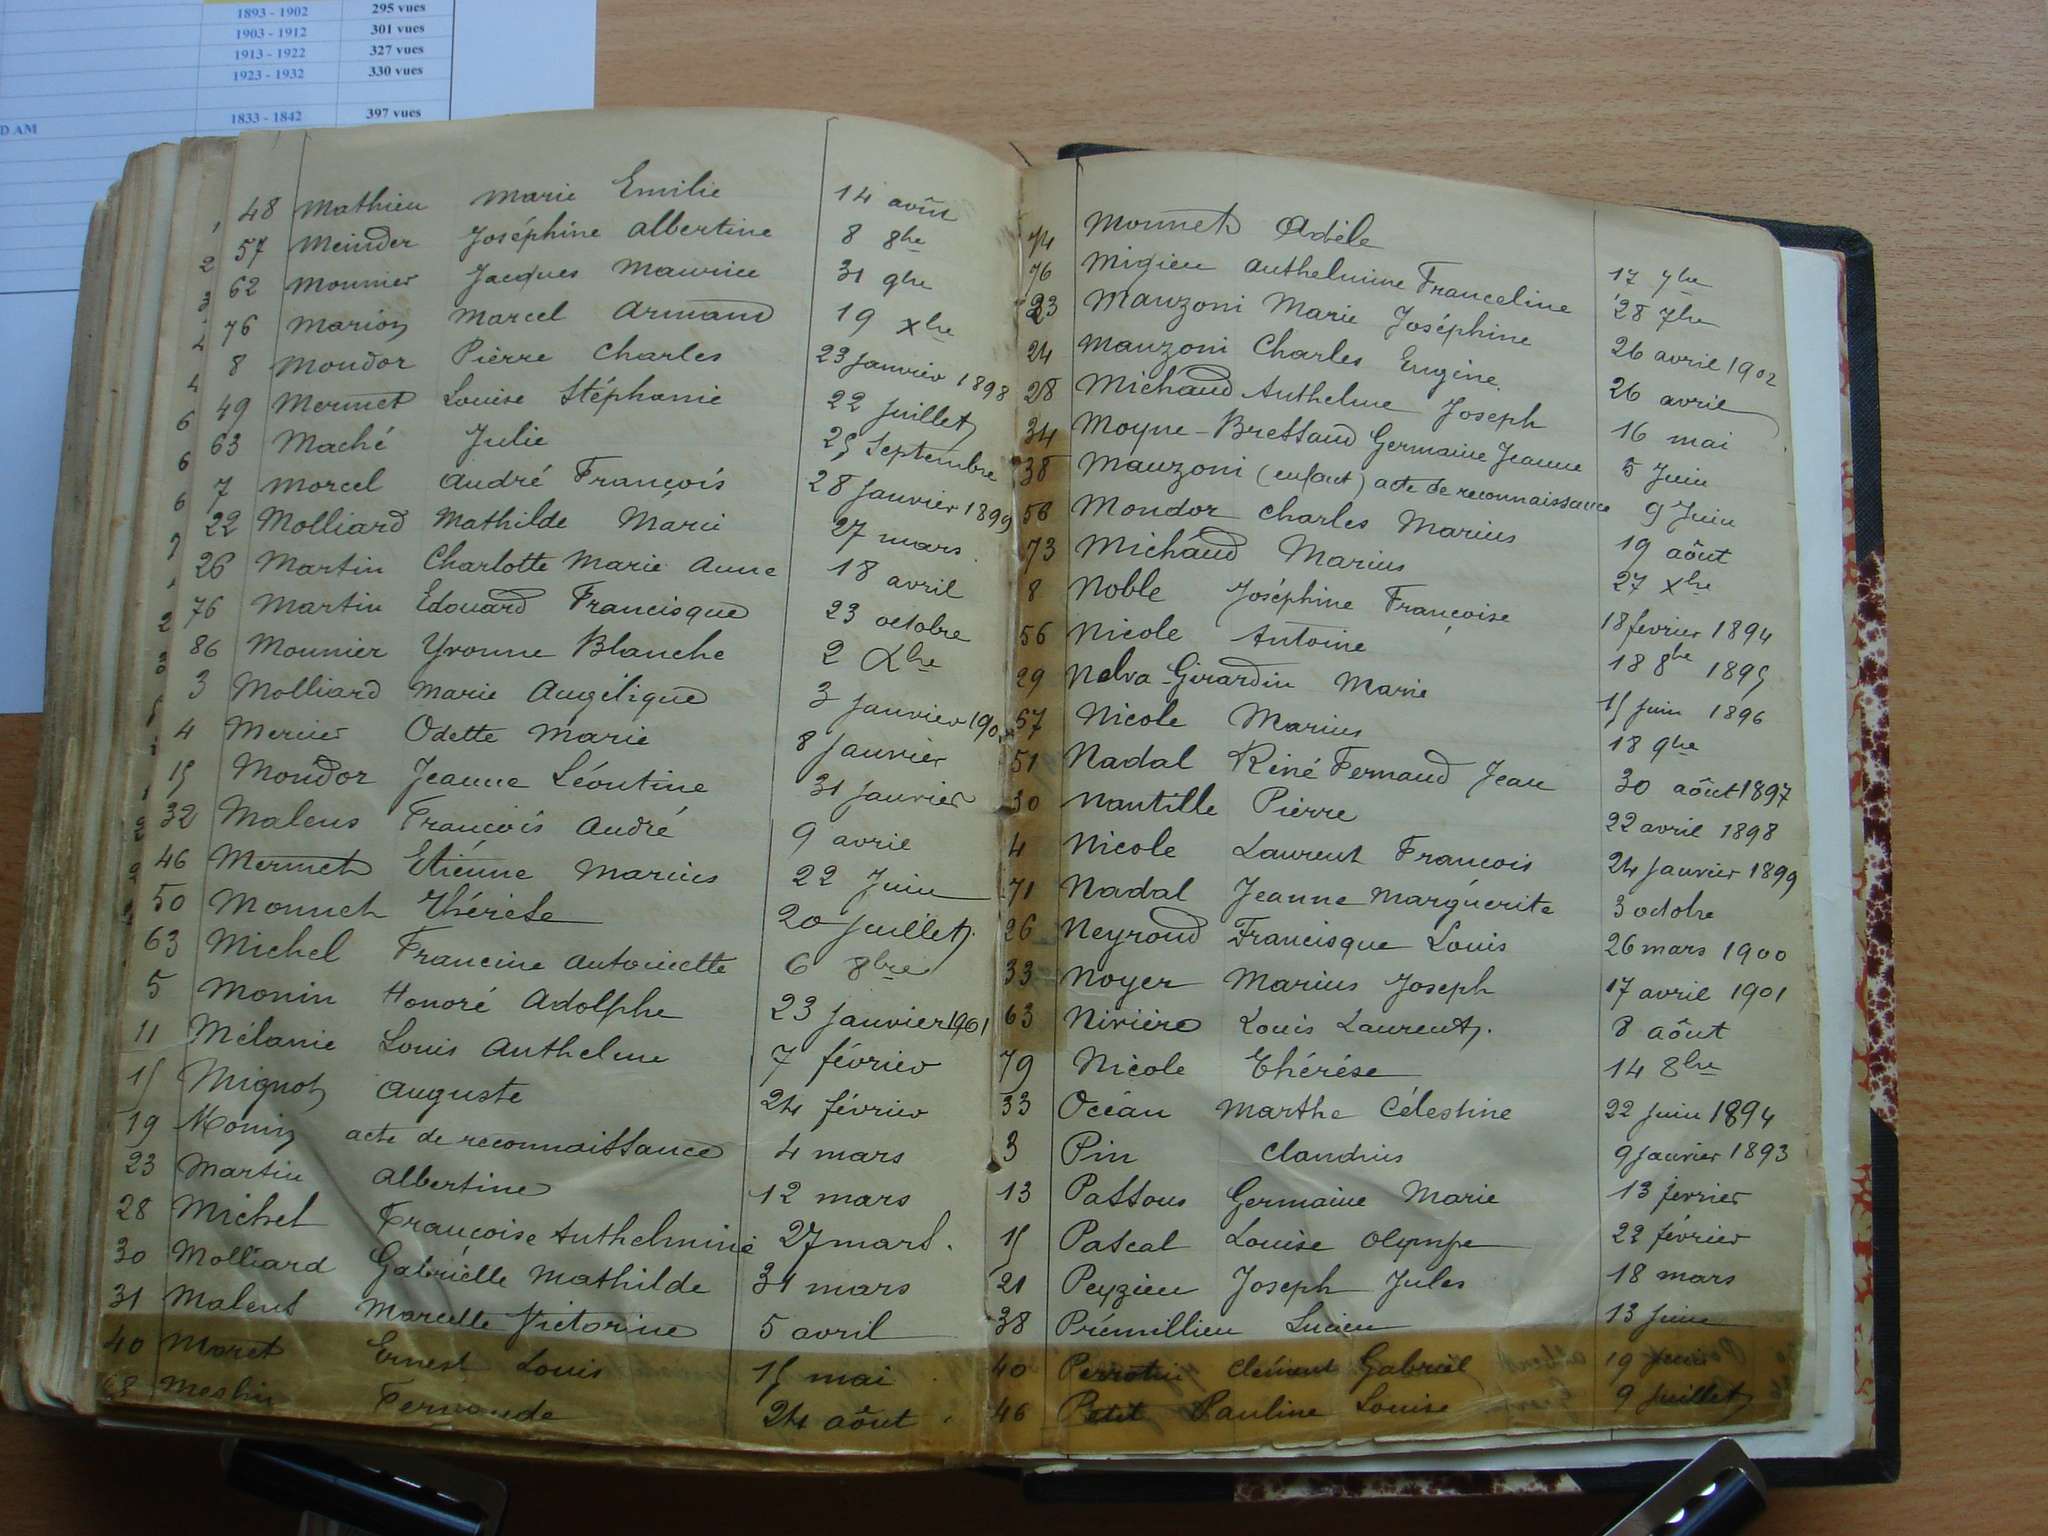 1893 - 1902 295 vues
1903 - 1912 301 vues
1913 - 1922 327 vues
1923 - 1932 330 vues
D AM 1833 - 1842 397 vues
48 Mathieu Marie Emilie 14 août
57 Meinder Joséphine Albertine 8 8bre
62 Mounier Jacques Maurice 31 9bre
76 Marion Marcel Armand 19 Xbre
8 Mondor Pierre Charles 23 Janvier 1898
49 Mermet Louise Stéphanie 22 Juillet
63 Maché Julie 25 Septembre
7 Morcel André François 28 Janvier 1899
22 Molliard Mathilde Marie 27 mars
26 Martin Charlotte Marie Anne 18 avril
76 Martin Edouard Francisque 23 octobre
86 Mounier Yvonne Blanche 2 Xbre
3 Molliard Marie Angélique 3 Janvier 190
4 Mercier Odette Marie 8 Janvier
15 Mondor Jeanne Léontine 31 Janvier
32 Malens François André 9 avril
46 Mermet Etienne Marius 22 Juin
50 Monnet Thérèse 20 Juillet
63 Michel Francine Antoinette 6 8bre
5 Monin Honoré Adolphe 23 Janvier 1901
11 Mélanie Louis Anthelme 7 février
15 Mignot Auguste 24 février
19 Monin acte de reconnaissance 4 mars
23 Martin Albertine 12 mars
28 Michel Françoise Anthelmine 27 mars.
30 Molliard Gabrielle Mathilde 31 mars
31 Malens Marcelle Victorine 5 avril
40 Moret Ernest Louis 15 mai
68 Fernande 24 aôut
74 Monnet Adèle 17 7bre
76 Migieu Anthelmine Franceline 28 7bre
23 Manzoni Marie Joséphine 26 avril 1902
24 Manzoni Charles Eugène. 26 avril
28 Michaud Anthelme Joseph 16 mai
34 Moyne-Bressand Germaine Jeanne 5 Juin
38 Manzoni (enfant) acte de reconnaissance 9 Juin
56 Mondor Charles Marius 19 aôut
73 Michaud Marius 27 Xbre
8 Noble Joséphine Françoise 18 fevrier 1894
56 Nicole Antoine 18 8bre 1895
29 Nelva-Girardin Marie 15 Juin 1896
57 Nicole Marius 18 9bre
51 Nadal Réné Fernand Jean 30 aôut 1897
30 Nantille Pierre 22 avril 1898
4 Nicole Laurent François 24 Janvier 1899
71 Nadal Jeanne Marguérite 3 octobre
26 Neyroud Francisque Louis 26 mars 1900
33 Noyer Marius Joseph 17 avril 1901
63 Nivière Louis Laurent. 8 aôut
79 Nicole Thérése 14 8bre
33 Océan Marthe Célestine 22 Juin 1894
3 Pin Claudius 9 Janvier 1893
13 Passous Germaine Marie 13 février
15 Pascal Louise Olympe 22 février
21 Peyzieu Joseph Jules 18 mars
38 Prémillieu Lucien 13 Juin
40 Perrotin Clément Gabriel 19 Juin
46 Petit Pauline Louise 9 Juillet